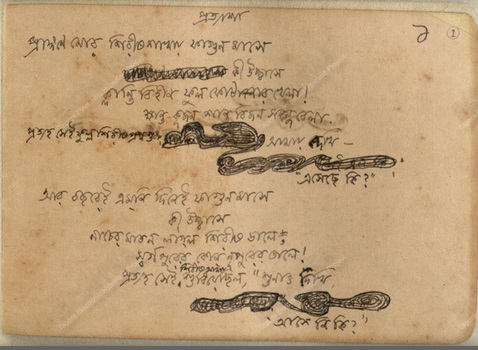 প্রত্যাশা
২ ১
প্রাঙ্গণে মোর শিরীষশাখায় ফাগুন মাসে
কী উচ্ছ্বাসে
ক্লান্তি বিহীন ফুল ফোটানোর খেলা!
ক্ষান্ত কূজন শান্ত বিজন সন্ধ্যাবেলা
প্রত্যহ সেই ফুল্ল শিরীষ প্রশ্ন শুধায় আমায় দেখি —
"এসেছে কি?"
আর বছরেই এমনি দিনেই ফাগুন মাসে
কী উচ্ছ্বাসে
নাচের মাতন লাগল শিরীষ ডালে,
স্বর্গপুরের কোন নূপুরের তালে!
প্রত্যহ সেই শুধিয়েছিল, "শুনাও দেখি
আসে নি কি?"